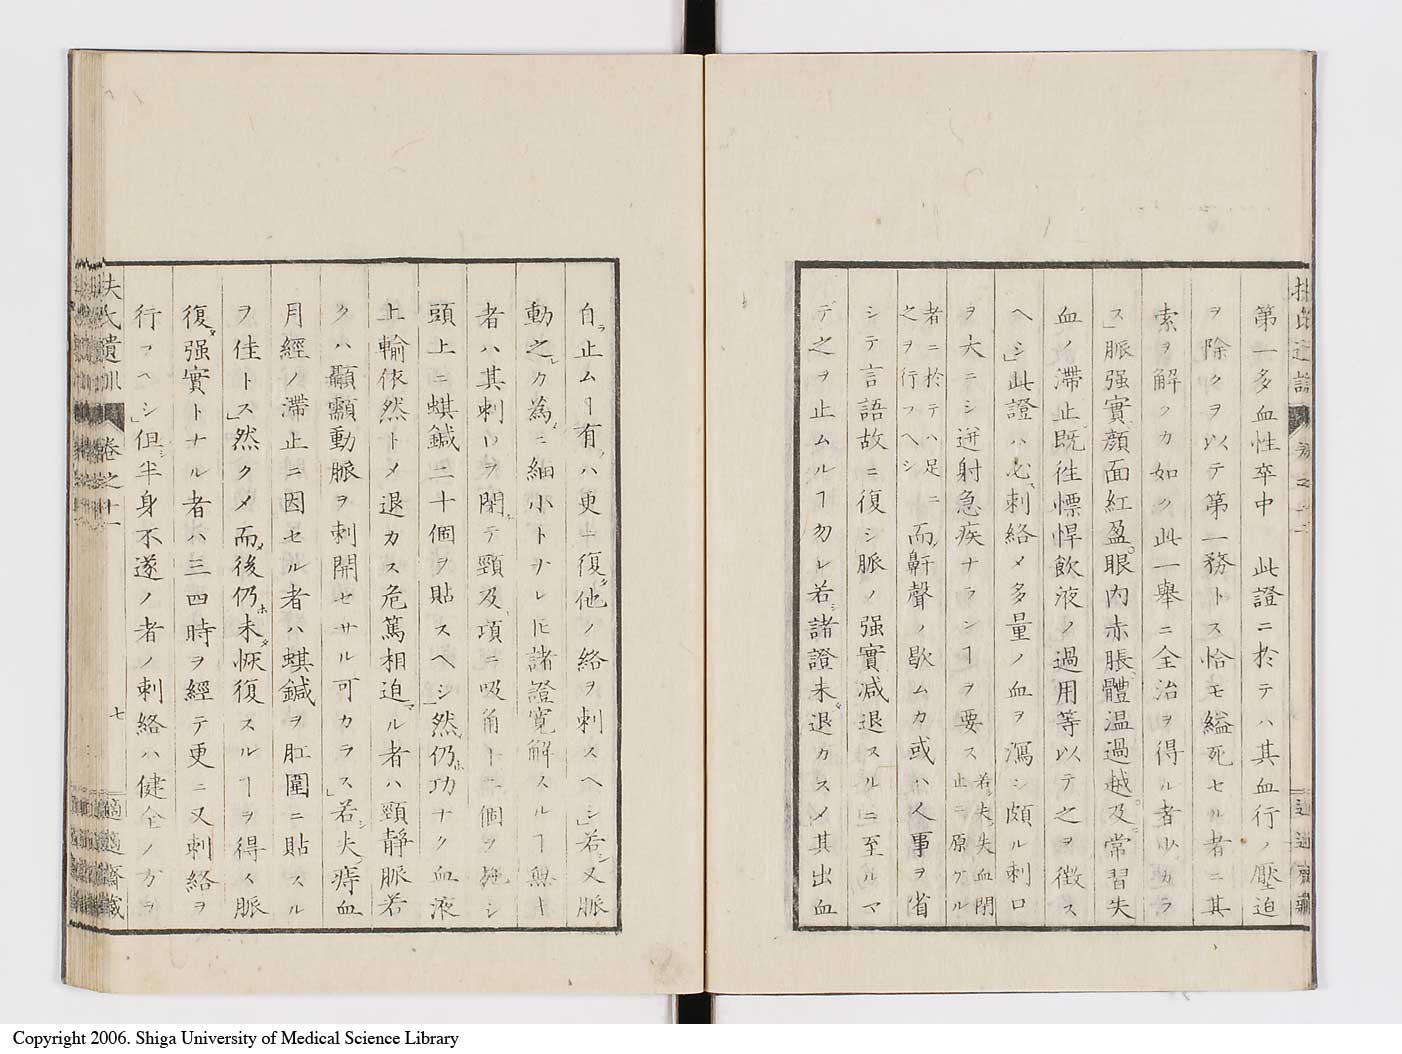 第一多血性卒中 此證ニ於テハ其血行ノ壓迫
ヲ除クヲ以テ第一務トス恰モ縊死セル者ニ其
索ヲ解クカ如ク此一舉ニ全治ヲ得ル者少カラ
ス」脈强實顔面紅盈眼内赤脹體温過越及常習失
血ノ滯止既往慓悍飲液ノ過用等以テ之ヲ徴ス
ヘシ」此證ハ必刺絡メ多量ノ血ヲ瀉シ頗ル刺口
ヲ大ニシ迸射急疾ナランヿヲ要ス若夫失血閉止ニ原ケル
者ニ於テハ足ニ之ヲ行フヘシ而鼾聲ノ歇ムカ或ハ人事ヲ省
シテ言語故ニ復シ脈ノ强實减退スルニ至ルマ
デ之ヲ止ムルヿ勿レ若諸證未退カスメ其出血
自止ムヿ有ハ更ニ復他ノ絡ヲ刺スヘシ」若又脈
動之カ為ニ細小トナレ𪜈諸證寛解スルヿ無キ
者ハ其刺口ヲ閉テ頸及項ニ吸角十二個ヲ施シ
頭上ニ蜞鍼二十個ヲ貼スヘシ」然仍功ナク血液
上輸依然トメ退カス危篤相迫ル者ハ頸靜脈若
クハ顳顬動脈ヲ刺開セサル可カラス」若夫痔血
月經ノ滯止ニ因セル者ハ蜞鍼ヲ肛圍ニ貼スル
ヲ佳トス」然クメ而後仍未恢復スルヿヲ得ス脈
復强實トナル者ハ三四時ヲ經テ更ニ又刺絡ヲ
行フヘシ」但半身不遂ノ者ノ刺絡ハ健全ノ方ヲ
扶氏遺訓 卷之十一 七 適適齋藏
Copyright 2006. Shiga University of Medical Science Library